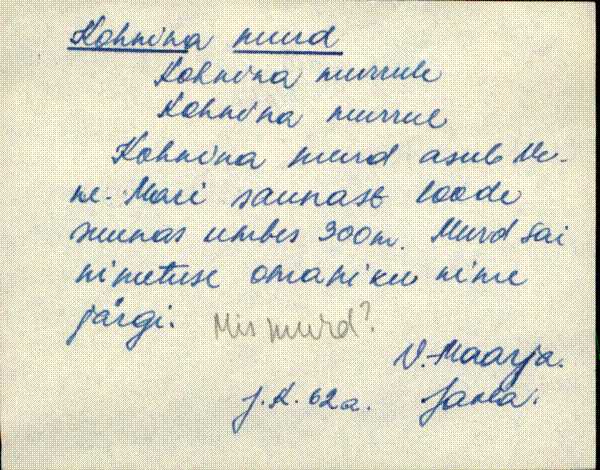 Kohnina murd
Kohnina murrule
Kohnina murrul
Kohnina murd asub Ve-
ne-Mari saunast loode
suunas umbes 300m. Murd sai
nimetuse omaniku nime
järgi. Mis murd?
V.-Maarja.
J.K. 62a.